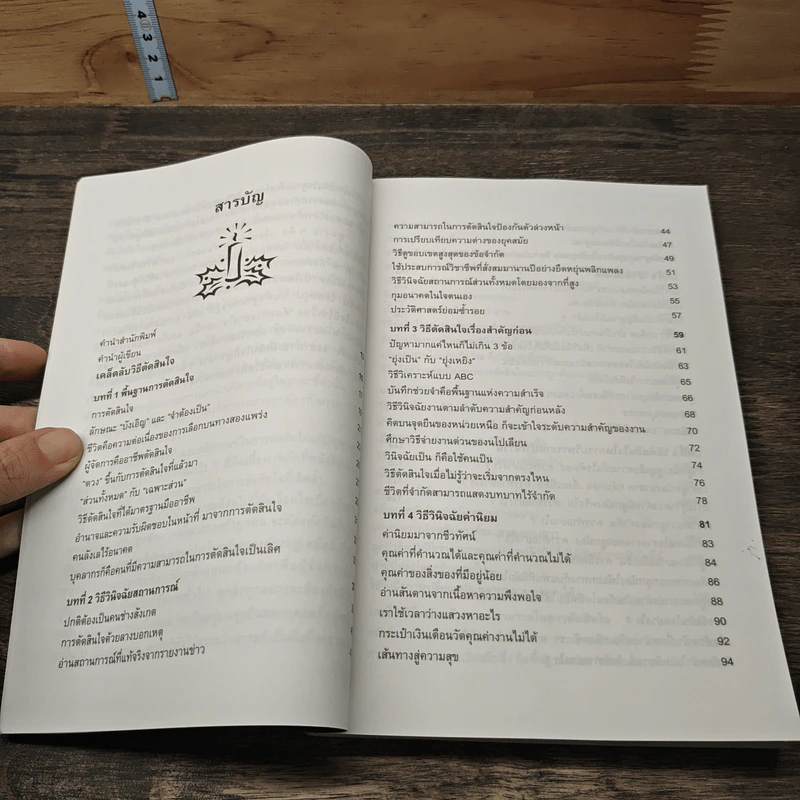 4
3
2
1
สารบัญ
คำนำสำนักพิมพ์
คำนำผู้เขียน
เคล็ดลับวิธีตัดสินใจ
บทที่ 1 พื้นฐานการตัดสินใจ
การตัดสินใจ
ลักษณะ "บังเอิญ" และ "จำต้องเป็น"
ชีวิตคือความต่อเนื่องของการเลือกบนทางสองแพร่ง
ผู้จัดการคืออาชีพตัดสินใจ
"ดวง" ขึ้นกับการตัดสินใจที่แล้วมา
"ส่วนทั้งหมด" กับ "เฉพาะส่วน"
วิธีตัดสินใจที่ได้มาตรฐานมืออาชีพ
อำนาจและความรับผิดชอบในหน้าที่ มาจากการตัดสินใจ
คนลังเลไร้อนาคต
บุคลากรก็คือคนที่มีความสามารถในการตัดสินใจเป็นเลิศ
บทที่ 2 วิธีวินิจฉัยสถานการณ์
ปกติต้องเป็นคนช่างสังเกต
การตัดสินใจด้วยลางบอกเหตุ
อ่านสถานการณ์ที่แท้จริงจากรายงานข่าว
ความสามารถในการตัดสินใจป้องกันตัวล่วงหน้า 44
การเปรียบเทียบความต่างของยุคสมัย 47
วิธีดูขอบเขตสูงสุดของข้อจำกัด 49
ใช้ประสบการณ์วิชาชีพที่สั่งสมมานานปีอย่างยืดหยุ่นพลิกแพลง 51
วิธีวินิจฉัยสถานการณ์ส่วนทั้งหมดโดยมองจากที่สูง 53
กุมอนาคตในใจตนเอง 55
ประวัติศาสตร์ย่อมซ้ำรอย 57
บทที่ 3 วิธีตัดสินใจเรื่องสำคัญก่อน 59
ปัญหามากแค่ไหนก็ไม่เกิน 3 ข้อ 61
"ยุ่งเป็น" กับ "ยุ่งเหยิง" 63
วิธีวิเคราะห์แบบ ABC 65
บันทึกช่วยจำคือพื้นฐานแห่งความสำเร็จ 66
วิธีวินิจฉัยงานตามลำดับความสำคัญก่อนหลัง 68
คิดบนจุดยืนของหน่วยเหนือ ก็จะเข้าใจระดับความสำคัญของงาน 70
ศึกษาวิธีจ่ายงานด่วนของนโปเลียน 72
วินิจฉัยเป็น ก็คือใช้คนเป็น 74
วิธีตัดสินใจเมื่อไม่รู้ว่าจะเริ่มจากตรงไหน 76
ชีวิตที่จำกัดสามารถแสดงบทบาทไร้จำกัด 78
บทที่ 4 วิธีวินิจฉัยค่านิยม 81
ค่านิยมมาจากชีวทัศน์ 83
คุณค่าที่คำนวณได้และคุณค่าที่คำนวณไม่ได้ 84
คุณค่าของสิ่งของที่มีอยู่น้อย 86
อ่านสันดานจากเนื้อหาความพึงพอใจ 88
เราใช้เวลาว่างแสวงหาอะไร 90
กระเป๋าเงินเดือนวัดคุณค่างานไม่ได้ 92
เส้นทางสู่ความสุข 94